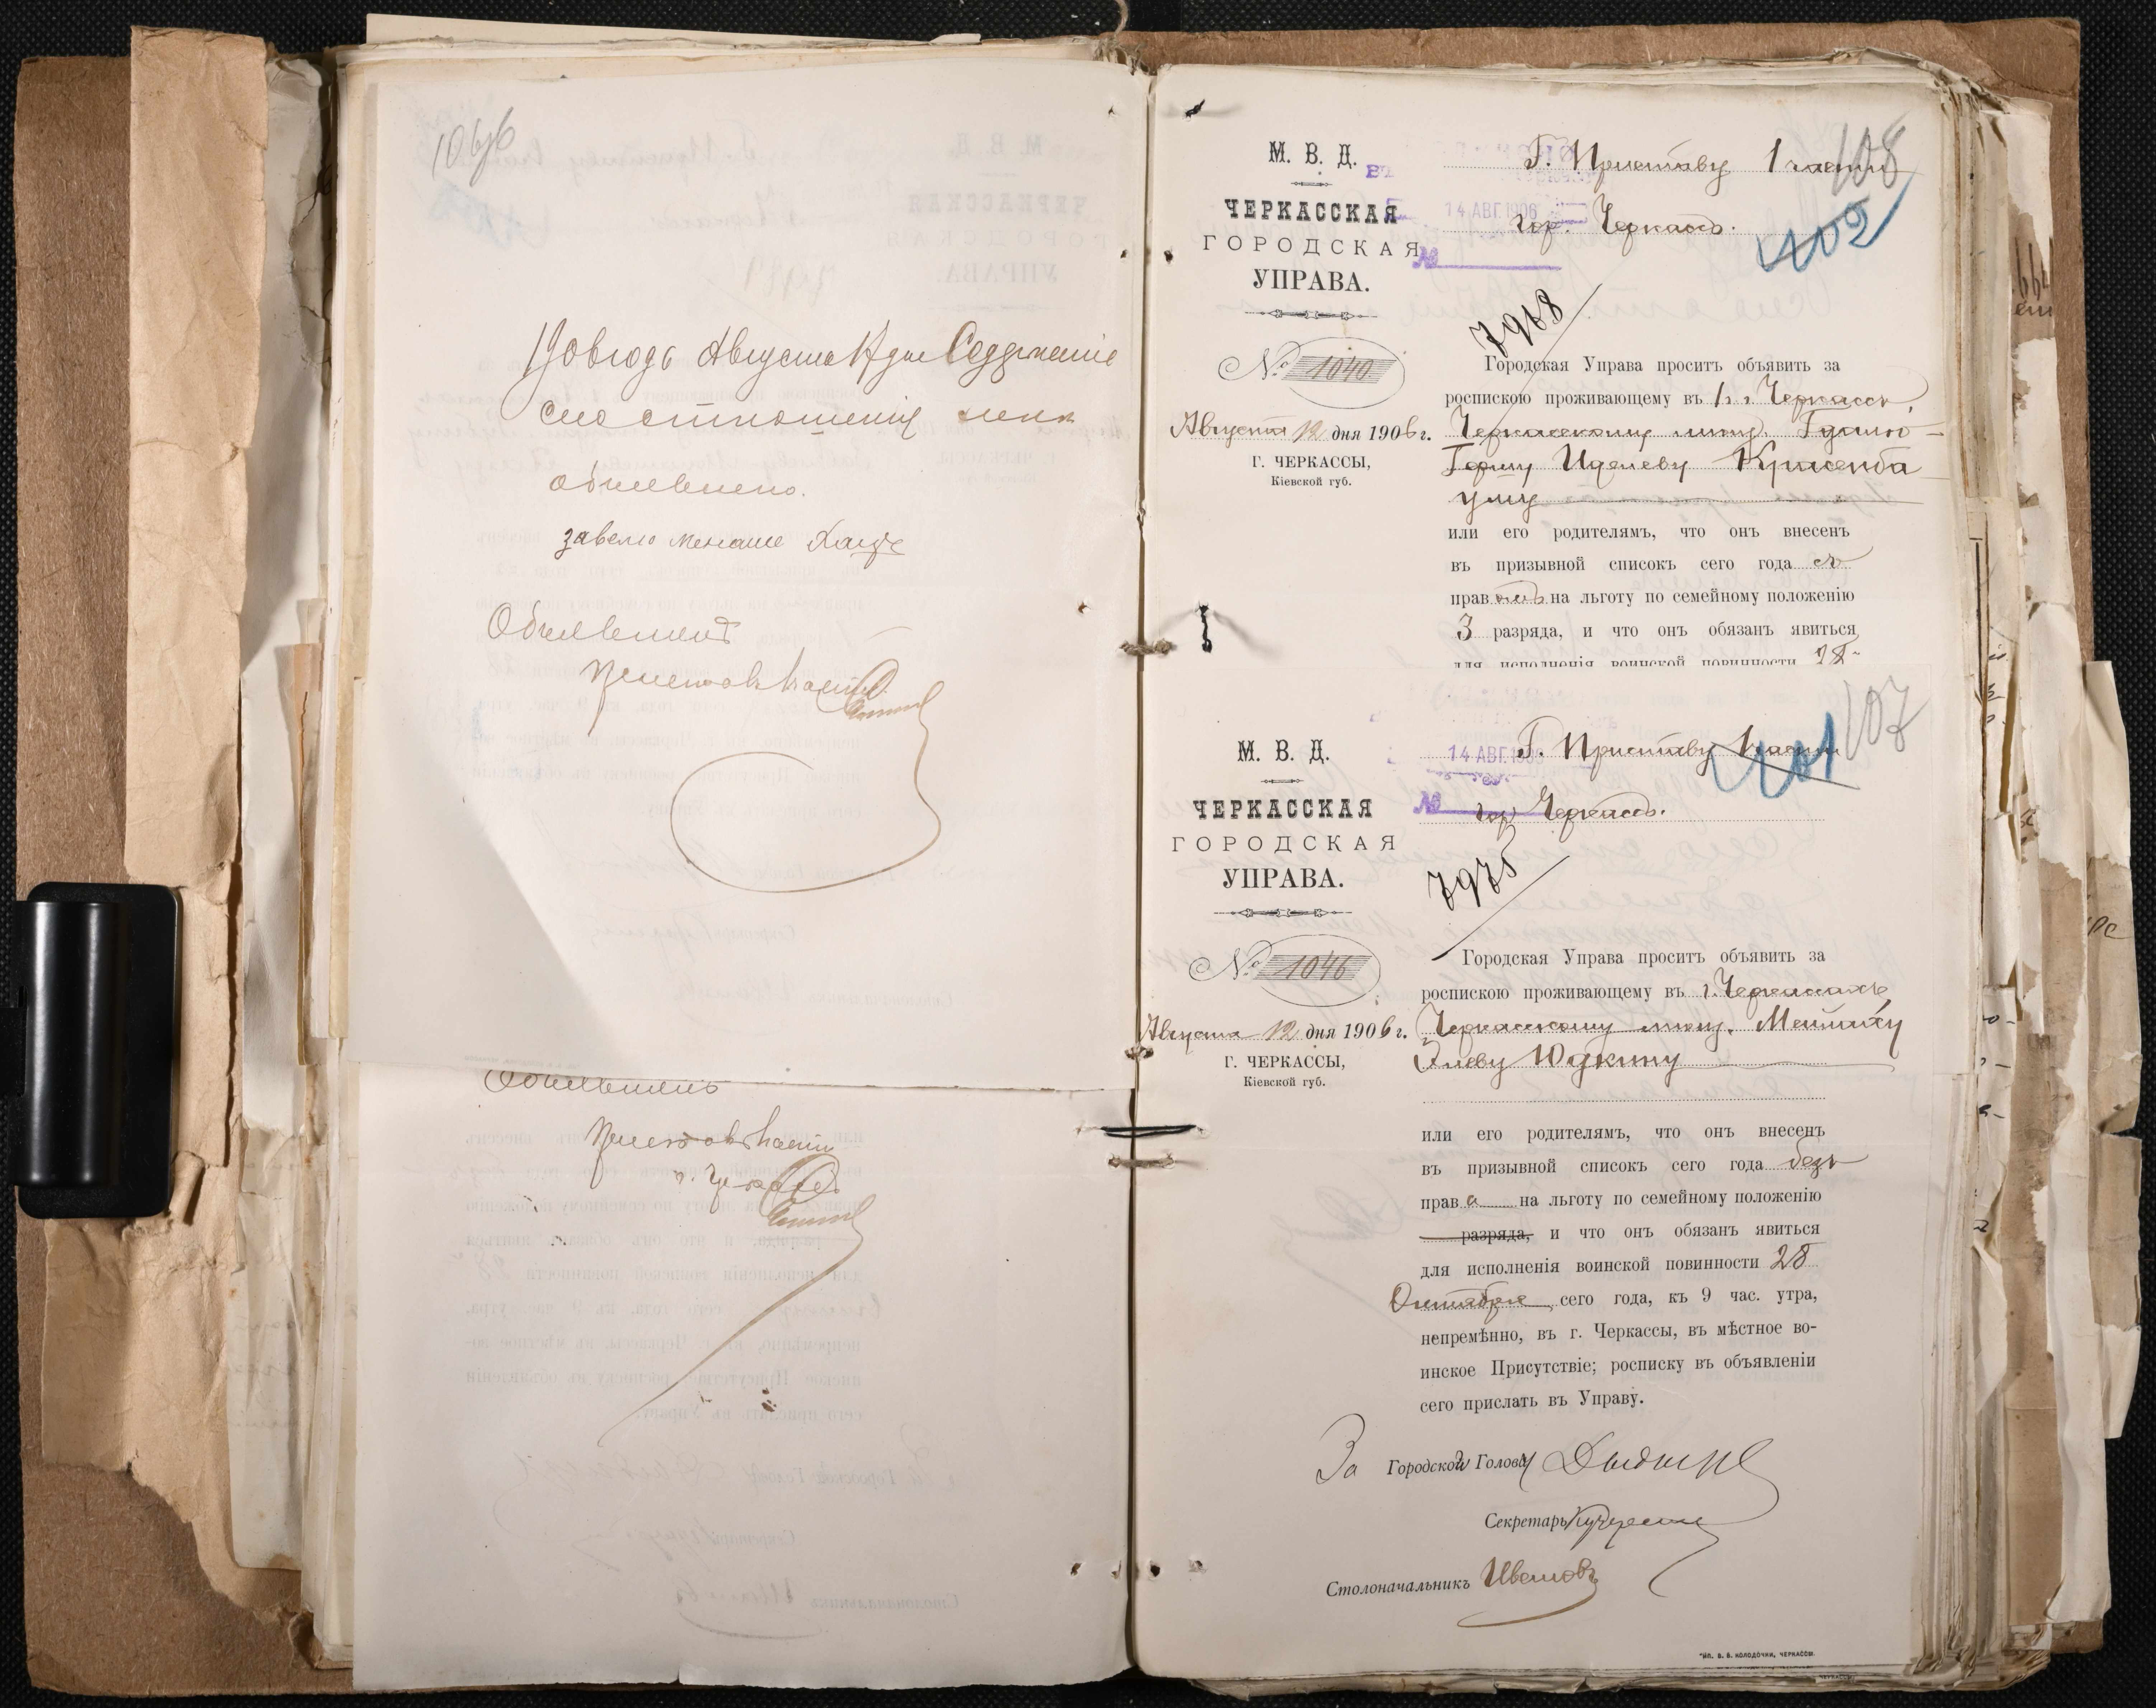 106об
1906 года Августа 17 дня Содержание
сего отношения мне
объявлено.
Объявилъ
Приставъ 1 части
Объявилъ
Приставъ 1 части
г. Черкассъ
М. В. Д.
ЧЕРКАССКАЯ
ГОРОДСКАЯ
УПРАВА.
№ 1040
Августа 12 дня 1906 г.
Г. ЧЕРКАССЫ,
Кіевской губ.
108
Г. Приставу 1 части
14 АВГ. 1906
гор. Черкассъ.
402
№
7968
Городская Управа проситъ объявить за
роспискою проживающему въ г. Черкассы,
Черкасскому мѣщ.
Иделеву Крисенба
уму
или его родителямъ, что онъ внесенъ
въ призывной списокъ сего года съ
прав омъ на льготу по семейному положенію
3 разряда, и что онъ обязанъ явиться
для исполненія воинской повинности 28
М. В. Д.
ЧЕРКАССКАЯ
ГОРОДСКАЯ
УПРАВА.
№ 1046
Августа 12 дня 1906 г.
Г. ЧЕРКАССЫ,
Кіевской губ.
107
Г. Приставу 1 части
401
14 АВГ. 1906
№ гор. Черкассъ.
7975
Городская Управа проситъ объявить за
роспискою проживающему въ г. Черкассахъ
Черкасскому мѣщ.
Элеву Юдкину
или его родителямъ, что онъ внесенъ
въ призывной списокъ сего года безъ
прав а на льготу по семейному положенію
разряда, и что онъ обязанъ явиться
для исполненія воинской повинности 28
Октября сего года, къ 9 час. утра,
непремѣнно, въ г. Черкассы, въ мѣстное во-
инское Присутствіе; росписку въ объявленіи
сего прислать въ Управу.
За Городского Голову
Секретарь
Столоначальникъ Ивановъ
Тип. В. В. КОЛОДОЧКИ, ЧЕРКАССЫ.